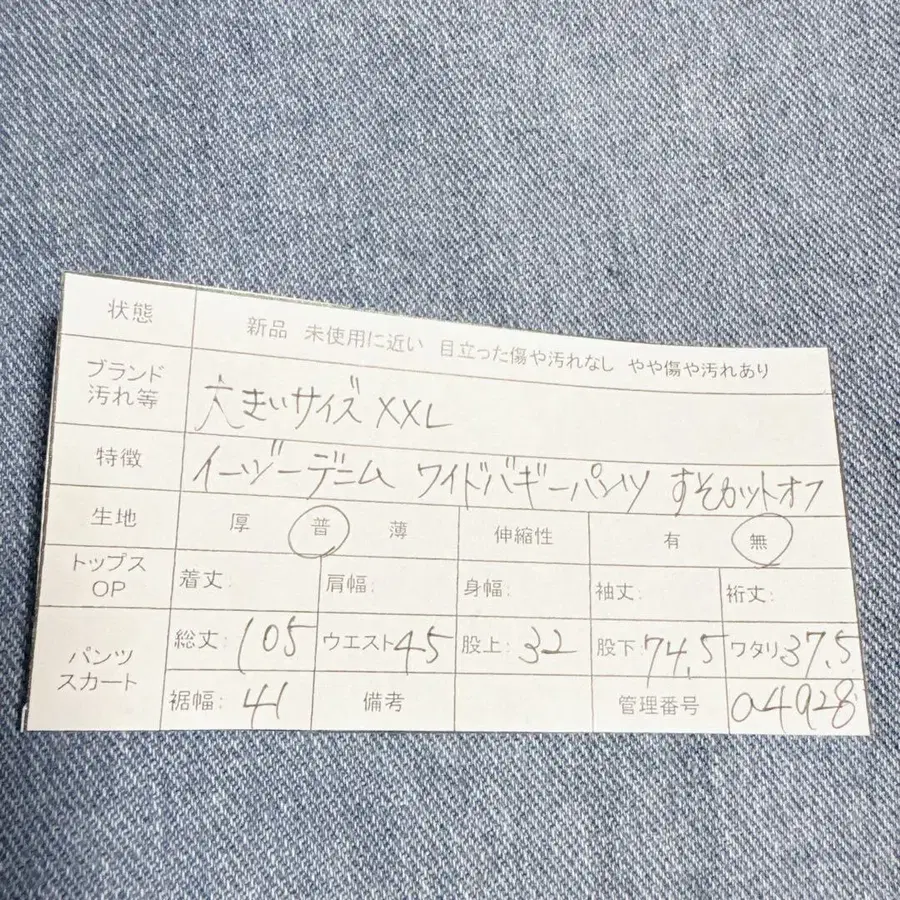 状態 新品 未使用に近い 目立った傷や汚れなし やや傷や汚れあり
ブランド
汚れ等 大きいサイズ XXL
特徴 イージーデニム ワイドバギーパンツ すそカットオフ
生地 厚 普 薄 伸縮性 有 無
トップス
OP 着丈: 肩幅: 身幅: 袖丈: 裄丈:
パンツ
スカート 総丈: 105 ウエスト 45 股上: 32 股下: 74.5 ワタリ: 37.5
裾幅: 41 備考 管理番号 04928